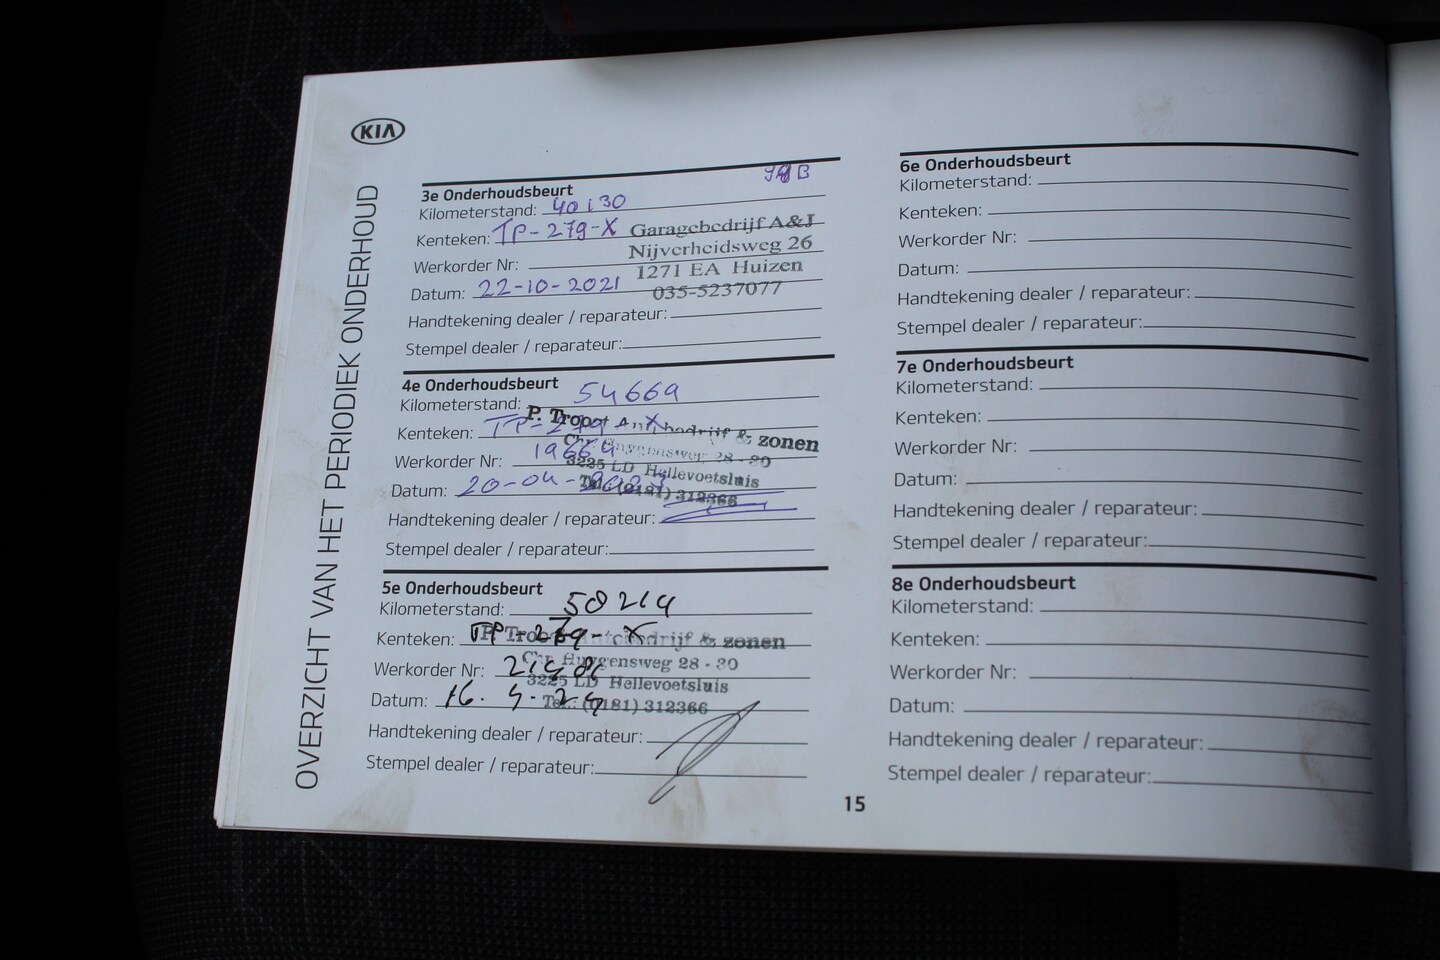 KIA
OVERZICHT VAN HET PERIODIEK ONDERHOUD
3e Onderhoudsbeurt
Kilometerstand: 40130
Kenteken: TP-279-X
Werkorder Nr:
Datum: 22-10-2021
Handtekening dealer / reparateur:
Stempel dealer / reparateur:
Garagebedrijf A&J
Nijverheidsweg 26
1271 EA Huizen
035-5237077
4e Onderhoudsbeurt
Kilometerstand: 54669
Kenteken: TP-279-X
Werkorder Nr: 19664
Datum: 20-04-
Handtekening dealer / reparateur:
Stempel dealer / reparateur:
P. Troost Autobedrijf & zonen
Chr. Huygensweg 28 - 30
3225 LD Hellevoetsluis
Tel.: (0181) 312366
5e Onderhoudsbeurt
Kilometerstand: 58214
Kenteken: TP-279-X
Werkorder Nr:
Datum: 16. 4. 24
Handtekening dealer / reparateur:
Stempel dealer / reparateur:
P. Troost Autobedrijf & zonen
Chr. Huygensweg 28 - 30
3225 LD Hellevoetsluis
Tel.: (0181) 312366
6e Onderhoudsbeurt
Kilometerstand:
Kenteken:
Werkorder Nr:
Datum:
Handtekening dealer / reparateur:
Stempel dealer / reparateur:
7e Onderhoudsbeurt
Kilometerstand:
Kenteken:
Werkorder Nr:
Datum:
Handtekening dealer / reparateur:
Stempel dealer / reparateur:
8e Onderhoudsbeurt
Kilometerstand:
Kenteken:
Werkorder Nr:
Datum:
Handtekening dealer / reparateur:
Stempel dealer / reparateur:
15